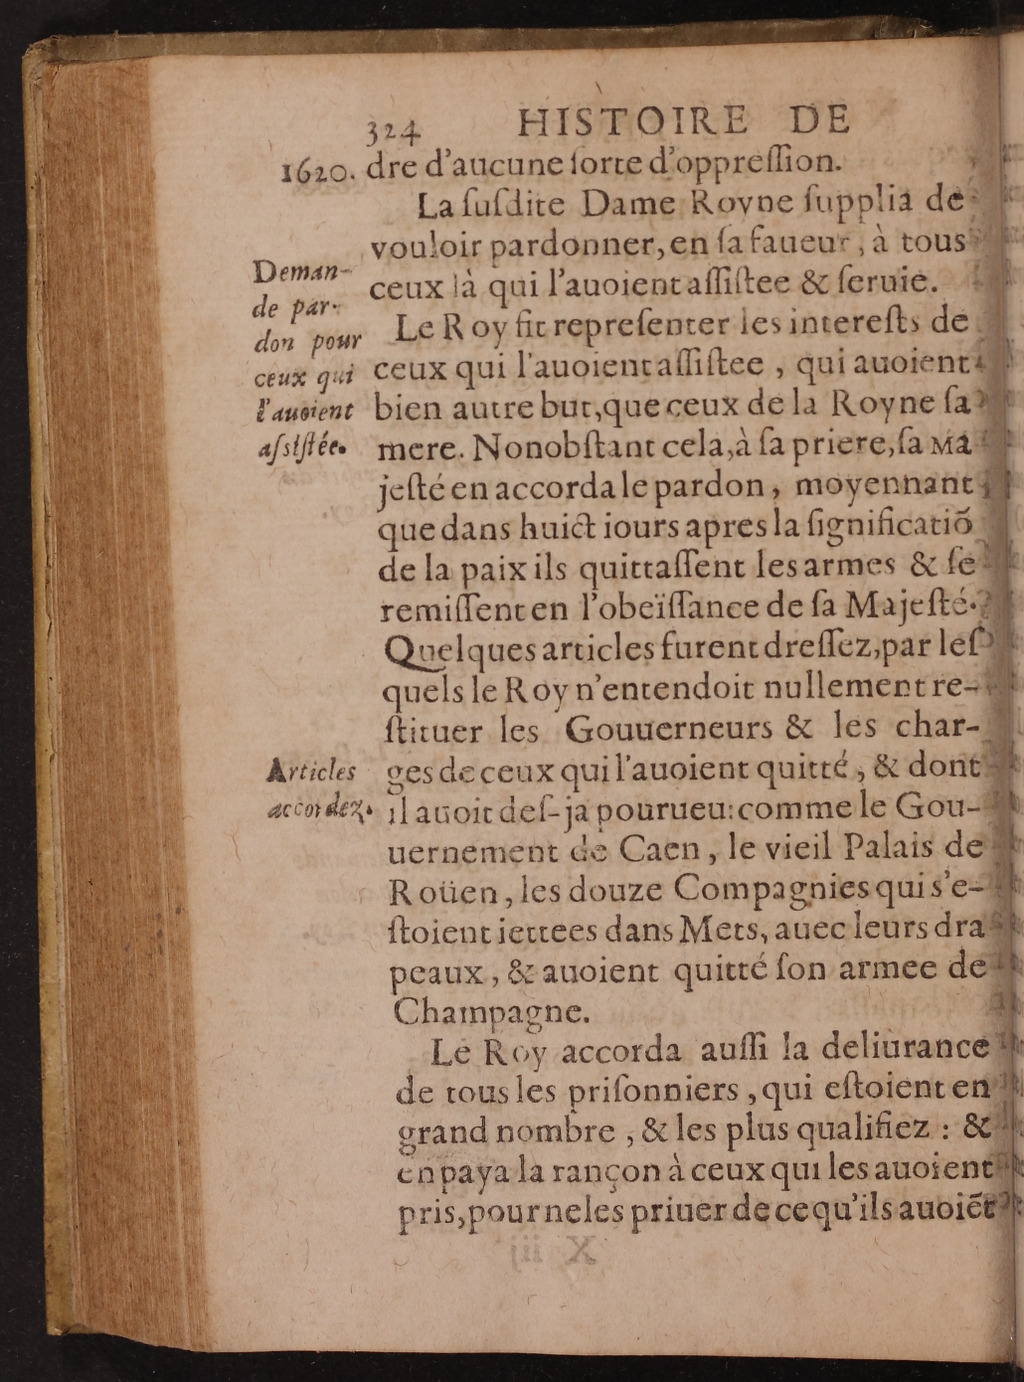 324 HISTOIRE DE
1620. dre d'aucune ſorte d'oppreſſion.
La ſuſdite Dame Royne ſupplia de
vouloir pardonner, en ſa faueur, à tous
ceux là qui l'auoient aſſiſtee & ſeruie.
Deman-
de par-
don pour
ceux qui
l'auoient
aſsiſtée.
Le Roy fit repreſenter les intereſts de
ceux qui l'auoient aſſiſtee, qui auoient
bien autre but, que ceux de la Royne ſa
mere. Nonobſtant cela, à ſa priere, ſa Ma
jeſté en accorda le pardon, moyennant
que dans huict iours apres la ſignificatiõ
de la paix ils quittaſſent les armes & ſe
remiſſent en l'obeïſſance de ſa Majeſté.
Quelques articles furent dreſſez, par leſ
quels le Roy n'entendoit nullement re-
ſtituer les Gouuerneurs & les char-
Articles
accordez.
ges de ceux qui l'auoient quitté, & dont
il auoit deſ-ja pourueu: comme le Gou-
uernement de Caen, le vieil Palais de
Roüen, les douze Compagnies qui s'e-
ſtoient iettees dans Mets, auec leurs dra
peaux, & auoient quitté ſon armee de
Champagne.
Le Roy accorda auſſi la deliurance
de tous les priſonniers, qui eſtoient en
grand nombre, & les plus qualifiez : &
en paya la rançon à ceux qui les auoient
pris, pour ne les priuer de ce qu'ils auoiẽt